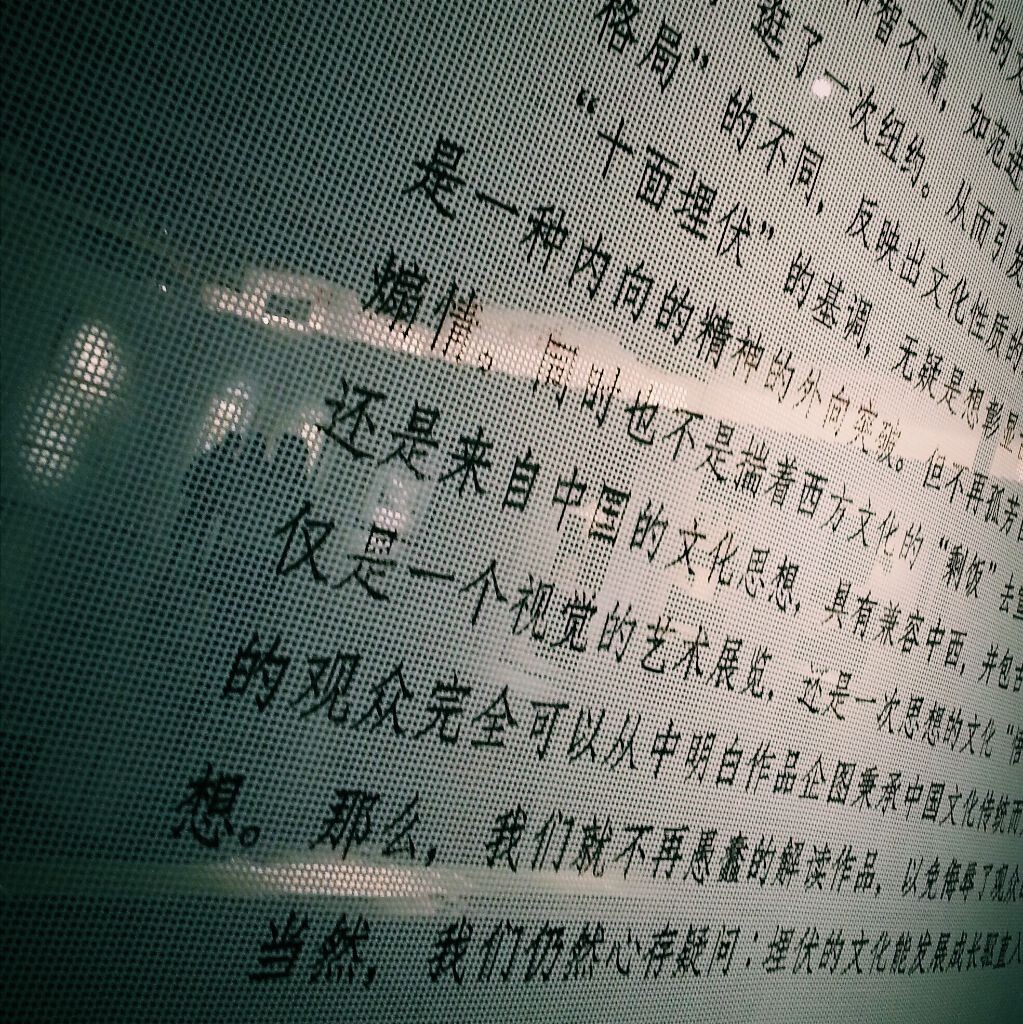 际的文
智不清，如范进
逛了一次纽约。从而引发
格局”的不同，反映出文化性质的
“十面埋伏”的基调，无疑是想彰显
是一种内向的精神的外向突破。但不再孤芳
煽情。同时也不是揣着西方文化的“剩饭”去
还是来自中国的文化思想，具有兼容中西，并包
仅是一个视觉的艺术展览，还是一次思想的文化“
的观众完全可以从中明白作品企图秉承中国文化传统而
想。那么，我们就不再愚蠢的解读作品，以免侮辱了观众
当然，我们仍然心存疑问：埋伏的文化能发展成长驱直入